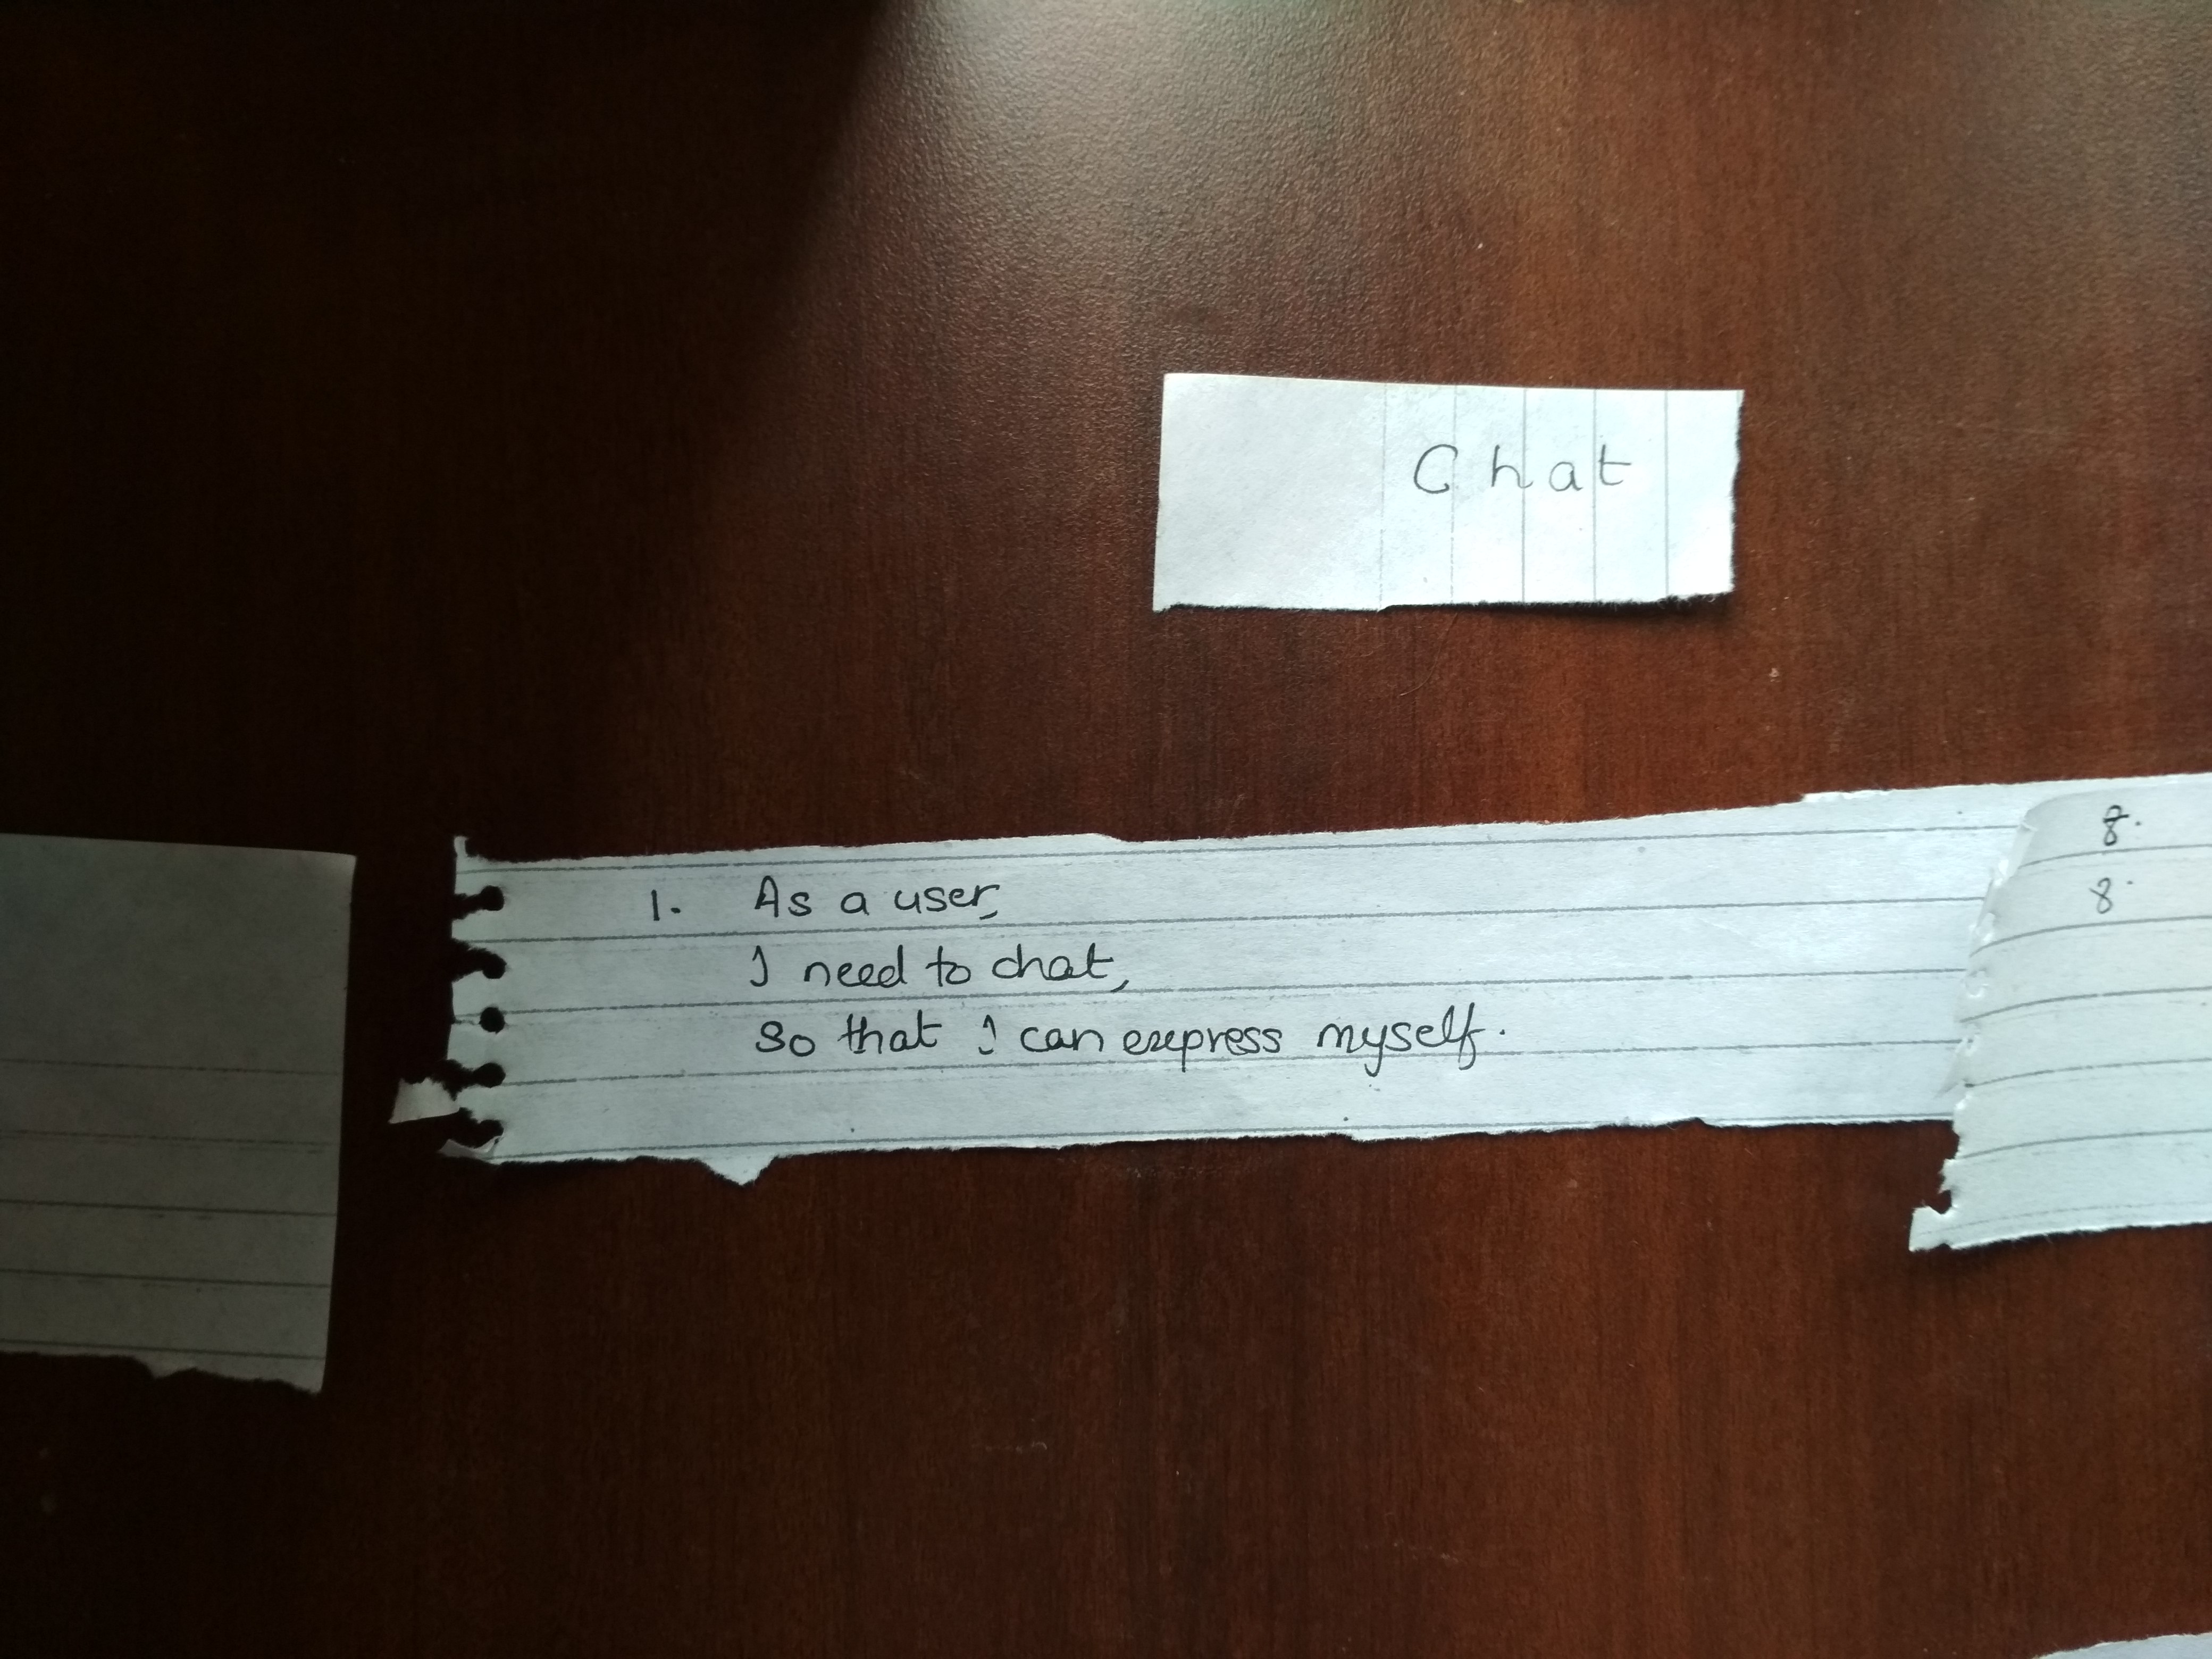 Chat
1. As a user,
I need to chat,
so that I can express myself.
8.
8.